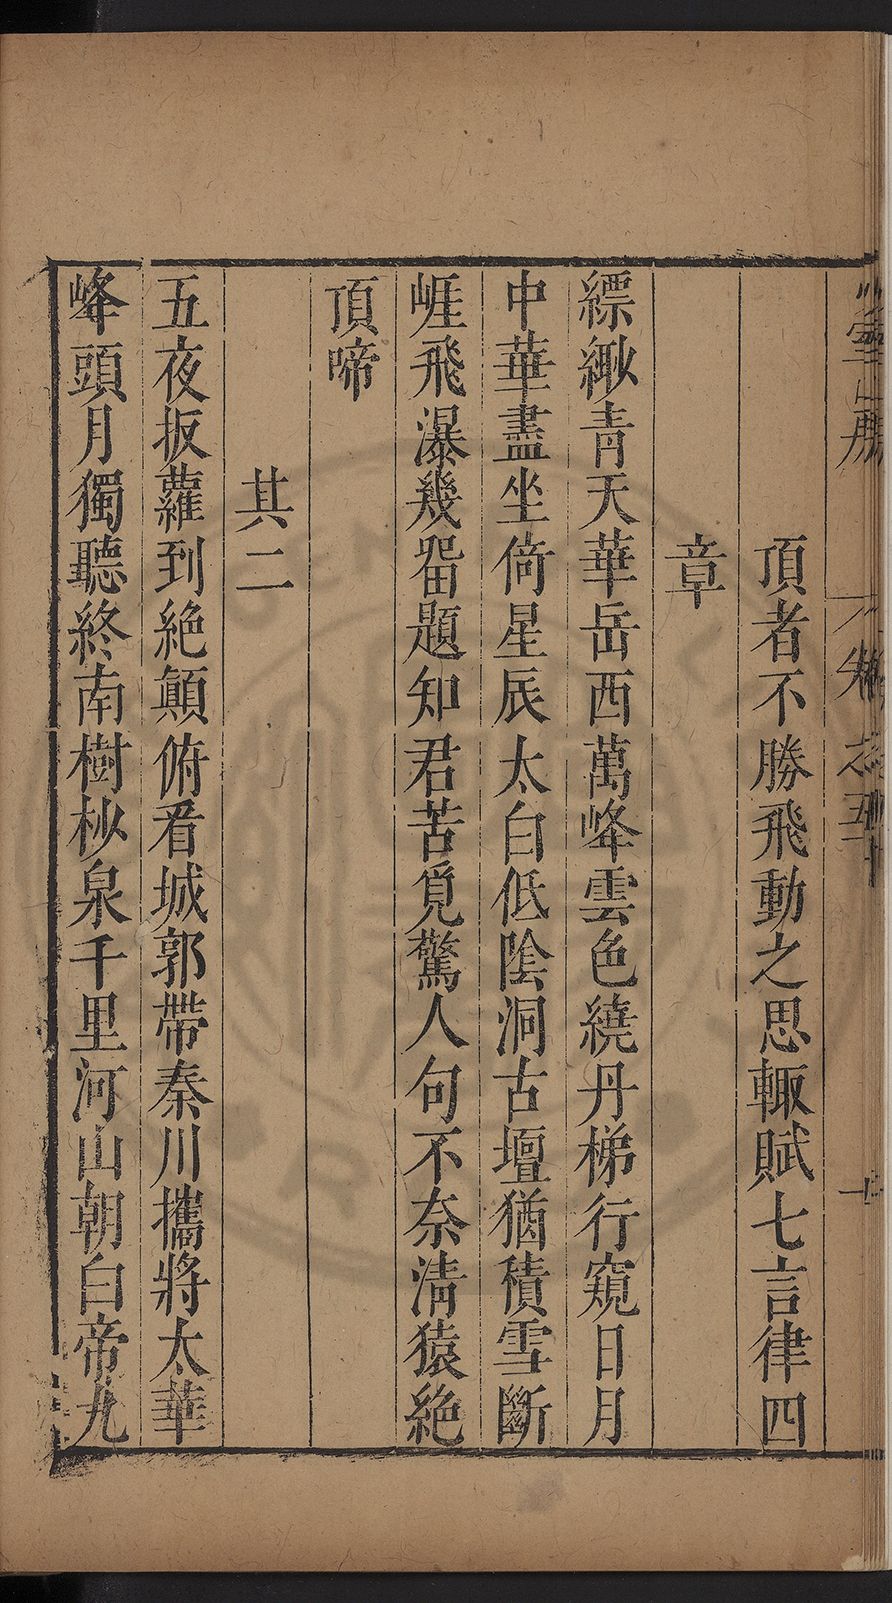 頂者不勝飛動之思輙賦七言律四
章
縹緲青天華岳西萬峰雲色繞丹梯行窺日月
中華盡坐倚星辰太白低陰洞古壇猶積雪斷
崕飛瀑幾畱題知君苦覓驚人句不奈淸猿絶
頂啼
其二
五夜扳蘿到絶顛俯看城郭帶秦川攜將太華
峰頭月獨聽終南樹杪泉千里河山朝白帝九